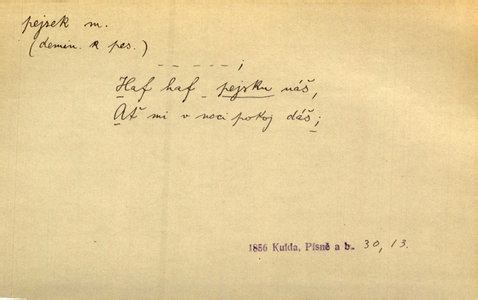 pejsek m.
(demin. k pes.)
– – – – – ;
Haf haf pejsku náš,
Ať mi v noci pokoj dáš;
1856 Kulda, Písně a b. 30, 13.